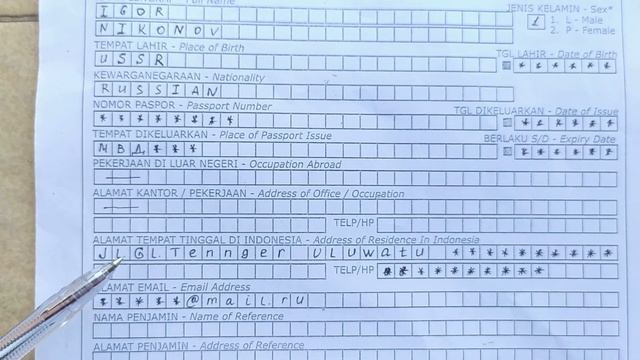 Full Name
IGOR
JENIS KELAMIN - Sex*
1 1. L - Male
NIKONOV
2. P - Female
TEMPAT LAHIR - Place of Birth
TGL LAHIR - Date of Birth
USSR ******
KEWARGANEGARAAN - Nationality
RUSSIAN
NOMOR PASPOR - Passport Number
TGL DIKELUARKAN - Date of Issue
********* ******
TEMPAT DIKELUARKAN - Place of Passport Issue
BERLAKU S/D - Expiry Date
МВД*** ******
PEKERJAAN DI LUAR NEGERI - Occupation Abroad
ALAMAT KANTOR / PEKERJAAN - Address of Office / Occupation
TELP/HP
ALAMAT TEMPAT TINGGAL DI INDONESIA - Address of Residence in Indonesia
JL GL. Tennger Uluwatu **********
TELP/HP **********
ALAMAT EMAIL - Email Address
*****@mail.ru
NAMA PENJAMIN - Name of Reference
ALAMAT PENJAMIN - Address of Reference